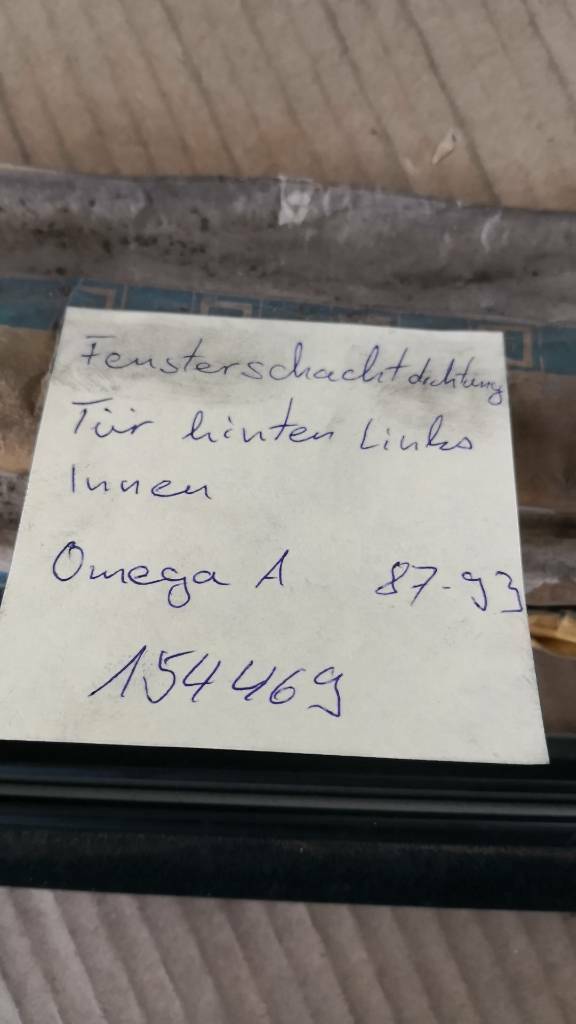 Fensterschachtdichtung
Tür hinten Links
Innen
Omega A 87-93
154469